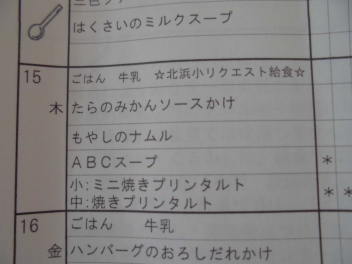 はくさいのミルクスープ
15 ごはん 牛乳 ☆北浜小リクエスト給食☆
木 たらのみかんソースかけ
もやしのナムル
ABCスープ *
小:ミニ焼きプリンタルト
中:焼きプリンタルト * *
16 ごはん 牛乳
金 ハンバーグのおろしだれかけ